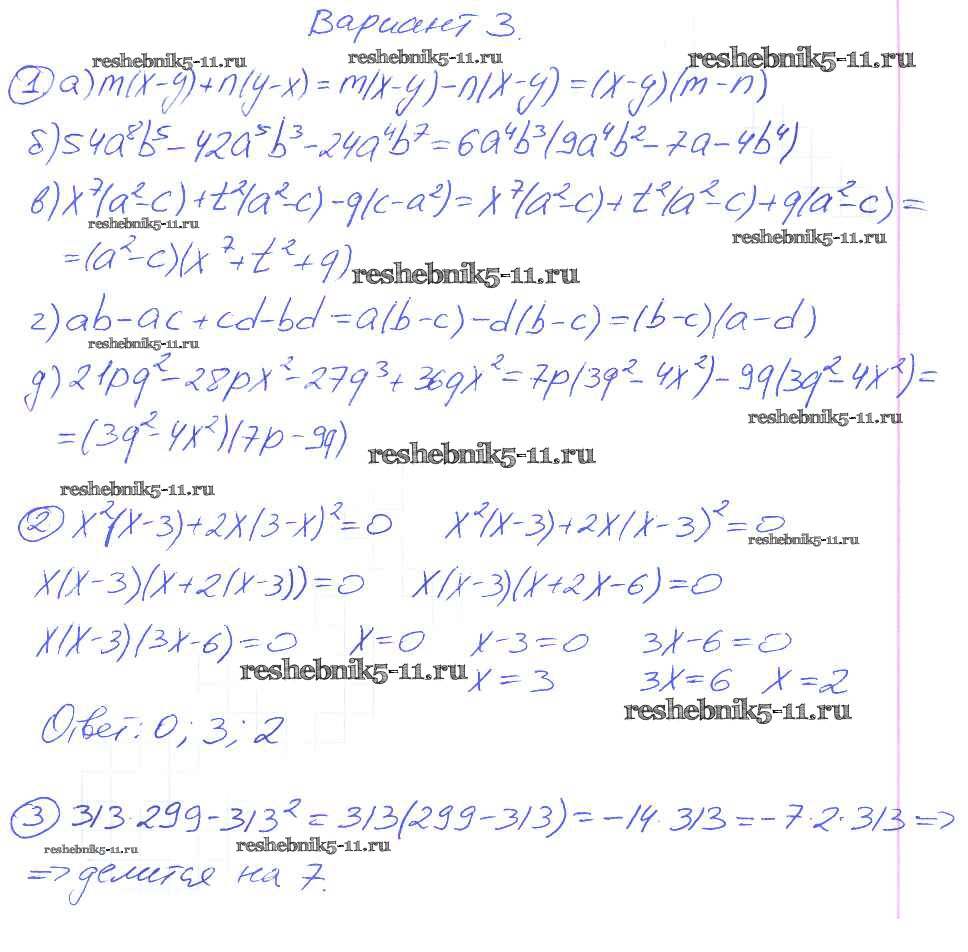 Вариант 3.
reshebnik5-11.ru reshebnik5-11.ru reshebnik5-11.ru
1 а) m(x-y)+n(y-x)=m(x-y)-n(x-y)=(x-y)(m-n)
б) 54a⁸b⁵-42a⁵b³-24a⁴b⁷=6a⁴b³(9a⁴b²-7a-4b⁴)
в) x⁷(a²-c)+t²(a²-c)-q(c-a²)=x⁷(a²-c)+t²(a²-c)+q(a²-c)=
reshebnik5-11.ru reshebnik5-11.ru
=(a²-c)(x⁷+t²+q)
reshebnik5-11.ru
г) ab-ac+cd-bd=a(b-c)-d(b-c)=(b-c)(a-d)
reshebnik5-11.ru
д) 21pq²-28px²-27q³+36qx²=7p(3q²-4x²)-9q(3q²-4x²)=
reshebnik5-11.ru
=(3q²-4x²)(7p-9q)
reshebnik5-11.ru
reshebnik5-11.ru
2 x²(x-3)+2x(3-x)²=0 x²(x-3)+2x(x-3)²=0
reshebnik5-11.ru
x(x-3)(x+2(x-3))=0 x(x-3)(x+2x-6)=0
x(x-3)(3x-6)=0 x=0 x-3=0 3x-6=0
reshebnik5-11.ru
x=3 3x=6 x=2
reshebnik5-11.ru
Ответ: 0; 3; 2
3 313·299-313²=313(299-313)=-14·313=-7·2·313=>
reshebnik5-11.ru reshebnik5-11.ru
=> делится на 7.